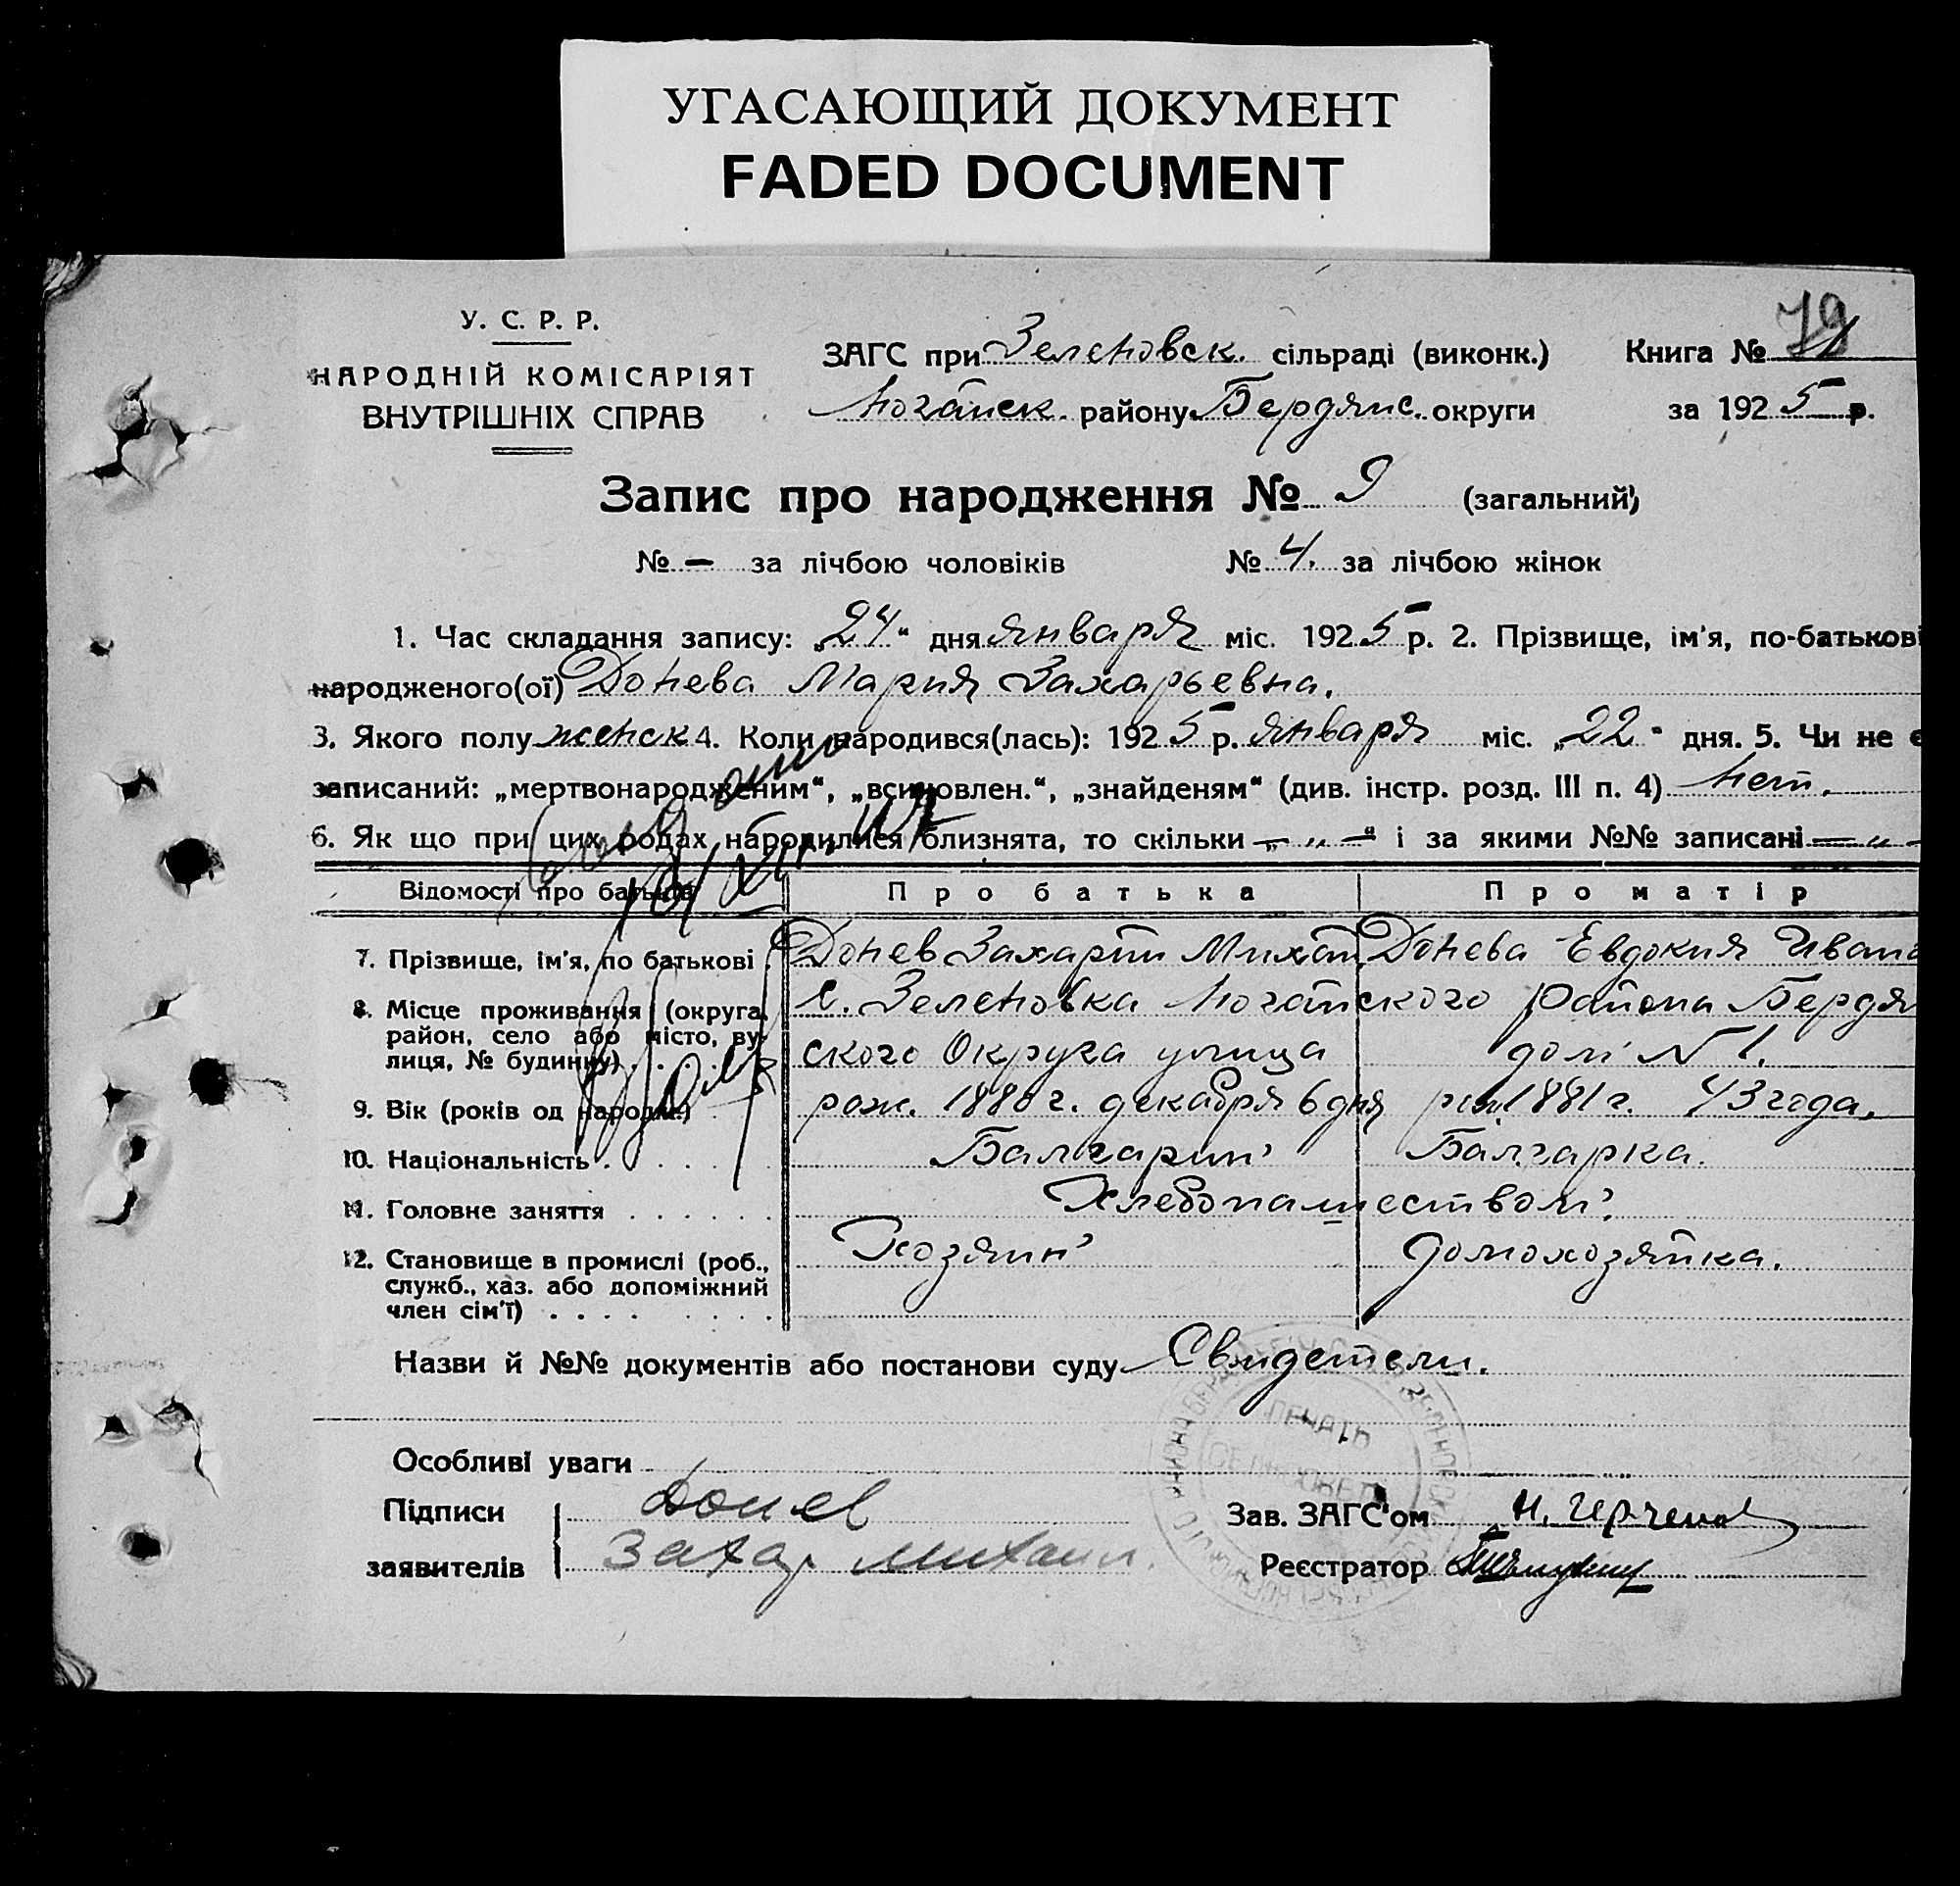 УГАСАЮЩИЙ ДОКУМЕНТ
FADED DOCUMENT
У. С. Р. Р.
НАРОДНІЙ КОМІСАРІЯТ
ВНУТРІШНІХ СПРАВ
ЗАГС при Зеленовск. сільраді (виконк.) Книга №
Ногайск. району Бердянс. округи за 1925 р.
Запис про народження № 9 (загальний)
№ — за лічбою чоловіків № 4. за лічбою жінок
1. Час складання запису: „24“ дня января міс. 1925 р. 2. Прізвище, ім'я, по-батькові
народженого(ої) Донева Мария Захарьевна.
3. Якого полу женск 4. Коли народився(лась): 1925 р. января міс. „22“ дня. 5. Чи не є
записаний: „мертвонародженим“, „всиновлен.“, „знайденям“ (див. інстр. розд. III п. 4) Нет.
6. Як що при цих родах народилися близнята, то скільки — „ — “ і за якими №№ записані — „ —
Відомості про батьків Про батька Про матір
7. Прізвище, ім'я, по батькові Донев Захарий Михай. Донева Евдокия Иван
8. Місце проживання (округа, район, село або місто, вулиця, № будинку) с. Зеленовка Ногайского района Бердян
ского Округа улица дом N 1.
9. Вік (років од народж.) рож. 1880 г. декабря 6 дня рож 1881 г. 43 года.
10. Національність Балгарин Балгарка.
11. Головне заняття Хлебопашеством
12. Становище в промислі (роб., служб., хаз. або допоміжний член сім'ї) Хозяин домохозяйка.
Назви й №№ документів або постанови суду Свидетели.
ПЕЧАТЬ
Особливі уваги
Підписи Донев Зав. ЗАГС'ом
заявителів Захар Михаил. Реєстратор